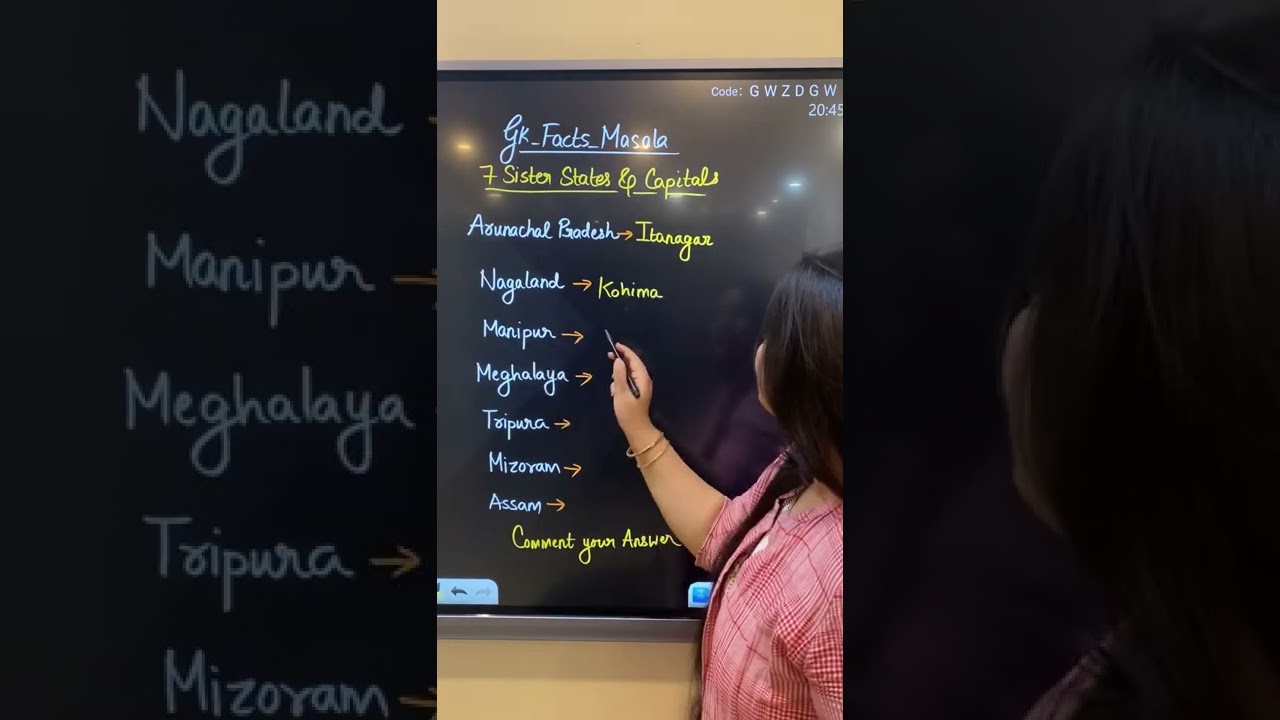 Code: G W Z D G W
20:45
GK_Facts_Masala
7 Sister States & Capitals
Arunachal Pradesh → Itanagar
Nagaland → Kohima
Manipur →
Meghalaya →
Tripura →
Mizoram →
Assam →
Comment your Answer
Nagaland
Manipur →
Meghalaya
Tripura →
Mizoram →